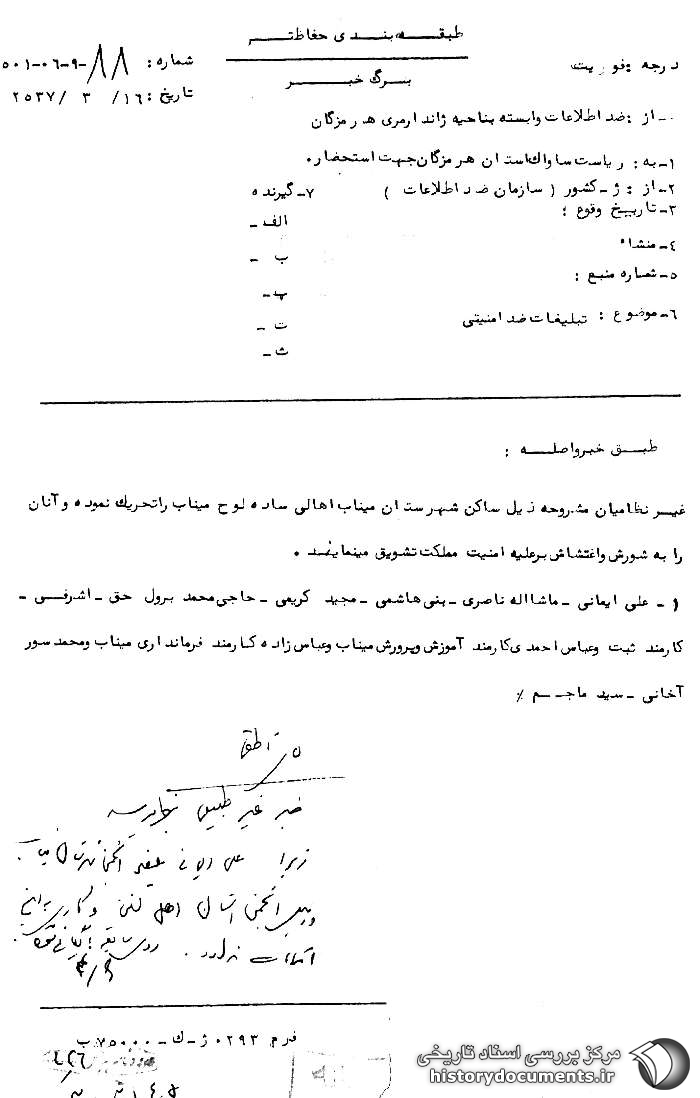 طبقه بندی حفاظت
درجه فوریت
شماره : ۸۸-۹-۰۶-۵۰۱
برگ خبر
تاریخ : ۱۶/ ۳ /۲۵۳۷
از : ضد اطلاعات وابسته بناحیه ژاندارمری هرمزگان
۱-به : ریاست ساواک استان هرمزگان جهت استحضار .
۲-از : ژ-کشور ( سازمان ضد اطلاعات )
۷-گیرنده
۳-تاریخ وقوع :
الف -
۴-منشاء
ب -
۵-شماره منبع :
پ-
۶-موضوع : تبلیغات ضد امنیتی
ت -
ث-
طبق خبر واصله :
غیر نظامیان مشروحه ذیل ساکن شهرستان میناب اهالی ساده لوح میناب را تحریک نموده و آنان
را به شورش واغتشاش برعلیه امنیت مملکت تشویق مینمایند .
۱ - علی ایمانی - ماشااله ناصری - بنی هاشمی - مجید کریمی - حاجی محمد برول حق - اشرفی -
کارمند ثبت وعباس احمدی کارمند آموزش وپرورش میناب وعباس زاده کارمند فرمانداری میناب ومحمد سور
آخانی - سید ماجم ٪
خبر غیر
زیرا علی ایمانی عضو انجمن شهرستان
انجمن استان اهل
فرم ۰۲۹۳ ژ-ک-۷۵۰۰۰ب
مرکز بررسی اسناد تاریخی
historydocuments.ir